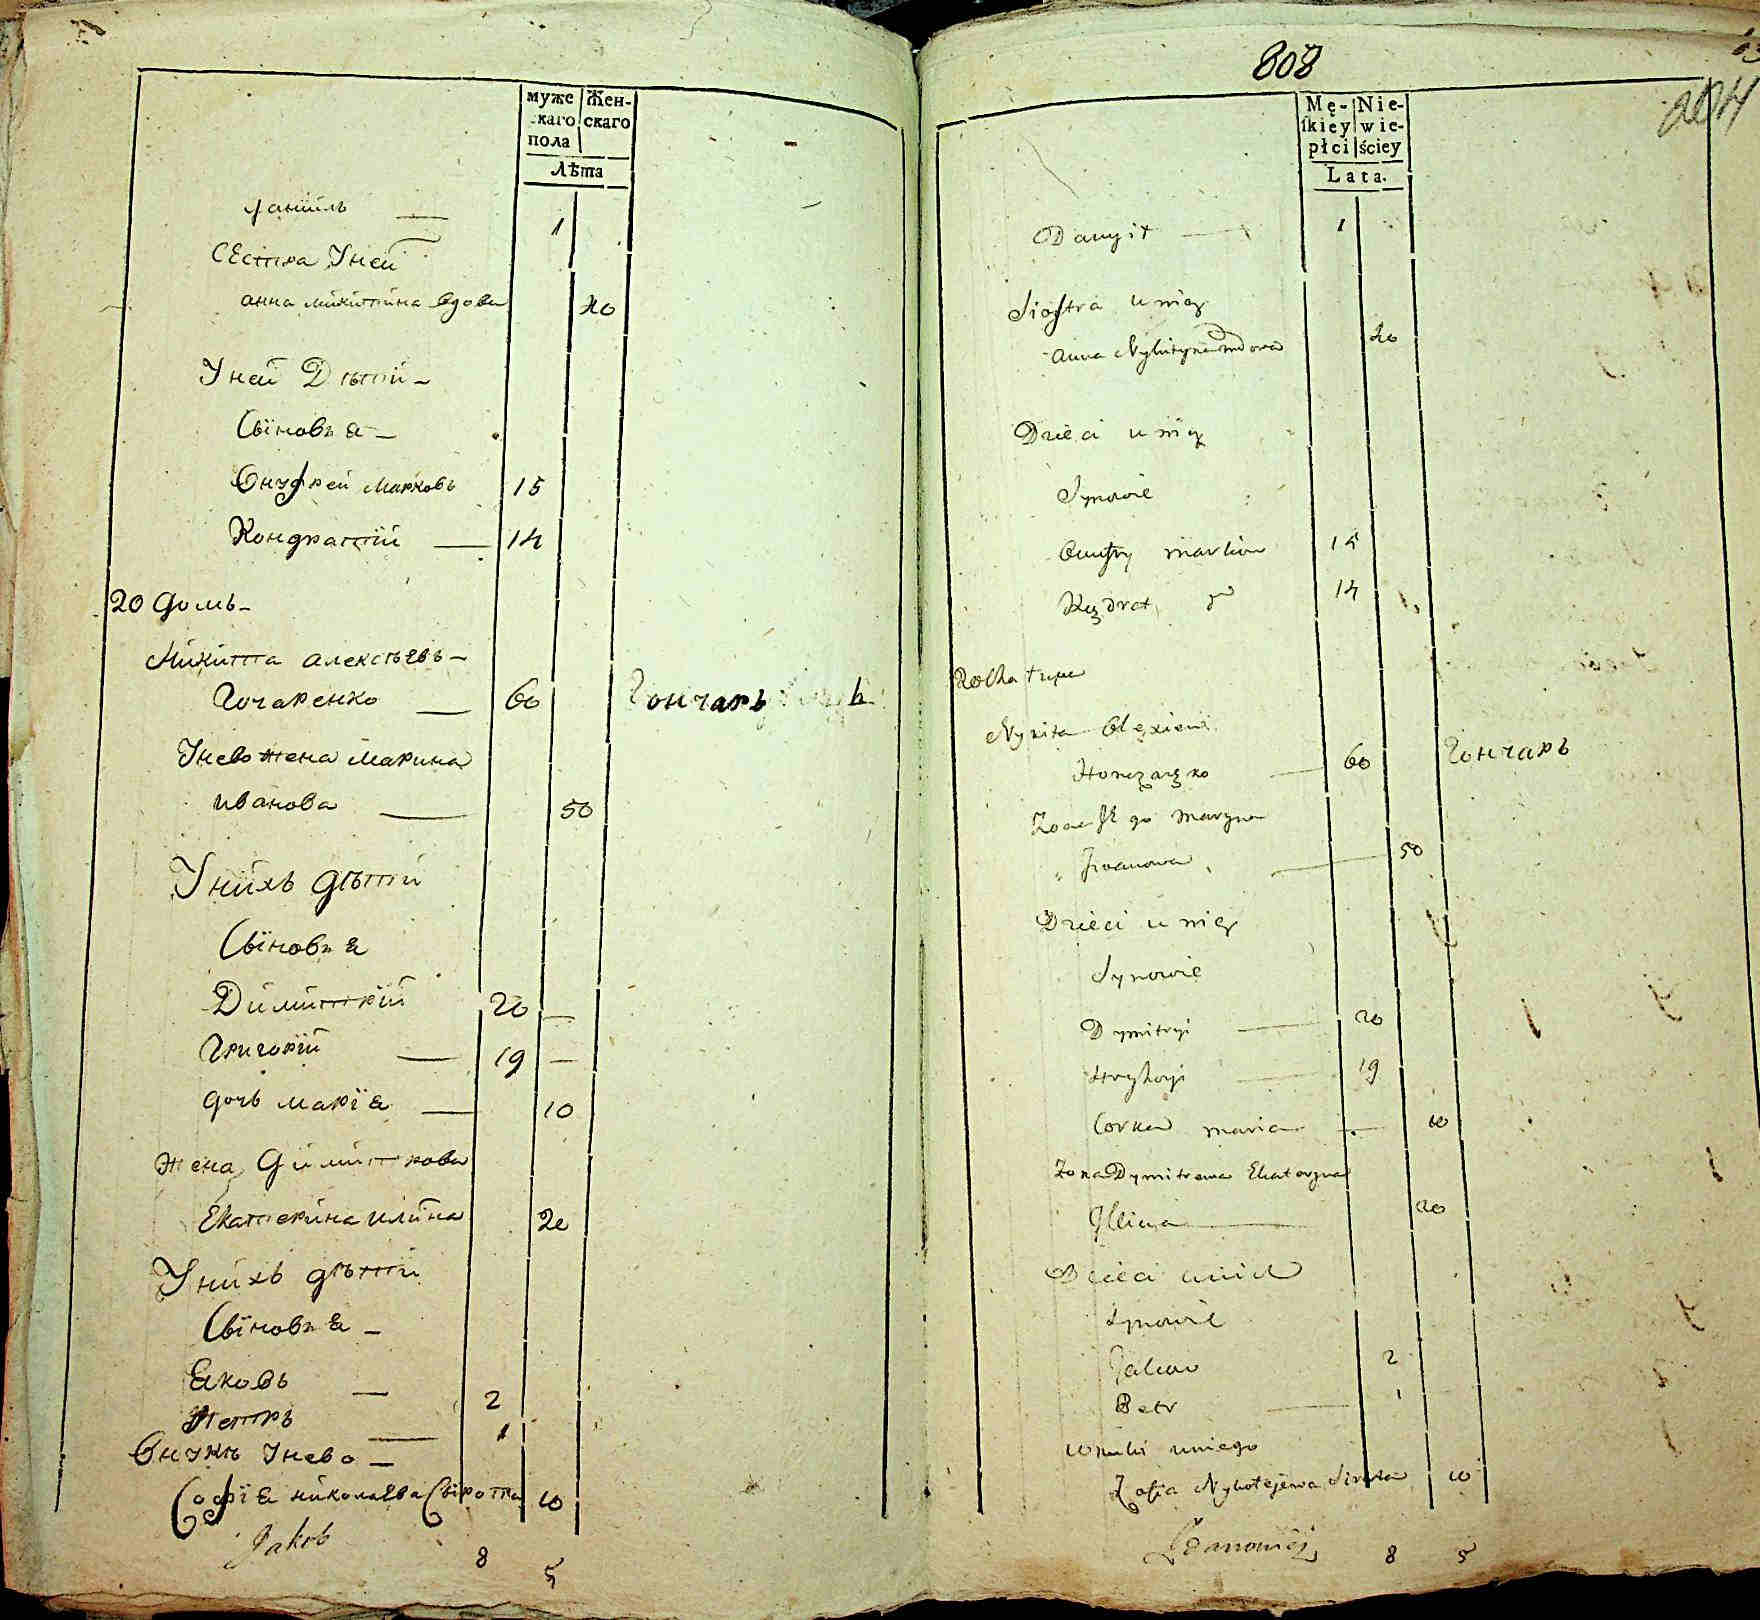 муже
скаго
пола
Жен-
скаго
Лѣта
Данїилъ — 1
Сестра Уней
анна микитина вдова 40
Уней Дѣти —
Сыновья —
Онуфрей Марковъ 15
Кондратїй — 14
20 домъ —
Микита алексѣевъ —
Гочаренко — 60 Гончаръ
Унево жена Марина
иванова — 50
Унихъ дѣти
Сыновья
Димитрїй 20 —
Григорїй — 19 —
дочь марїя — 10
жена Димитрова
Екатерина илїина 20
Унихъ дѣти
Сыновья —
Яковъ — 2
Петръ — 1
Онукъ Унево —
Софїя николаева Сырота 10
Jakób
8 5
808
204
Mę-
skiey
płci
Nie-
wie-
ściey
Lata.
Danyił — 1
Siostra u niey
Anna Mykityna wdowa 40
Dzieci u niey
Synowie
Onufry markow 15
Kądrat 14
Mykita Olexiew
Honczaręko — 60 Гончаръ
Zona Je go Maryna
Jwanowa — 50
Dzieci u niey
Synowie
Dymitryi — 20
Hryhoryi — 19
Corka maria — 10
Zona Dymitrowa Ekateryna
Jllina — 20
Dzieci u nich
Synowie
Jakow 2
Petr — 1
wnuki uniego
Zofia Mykołejewa Sirota 10
8 5